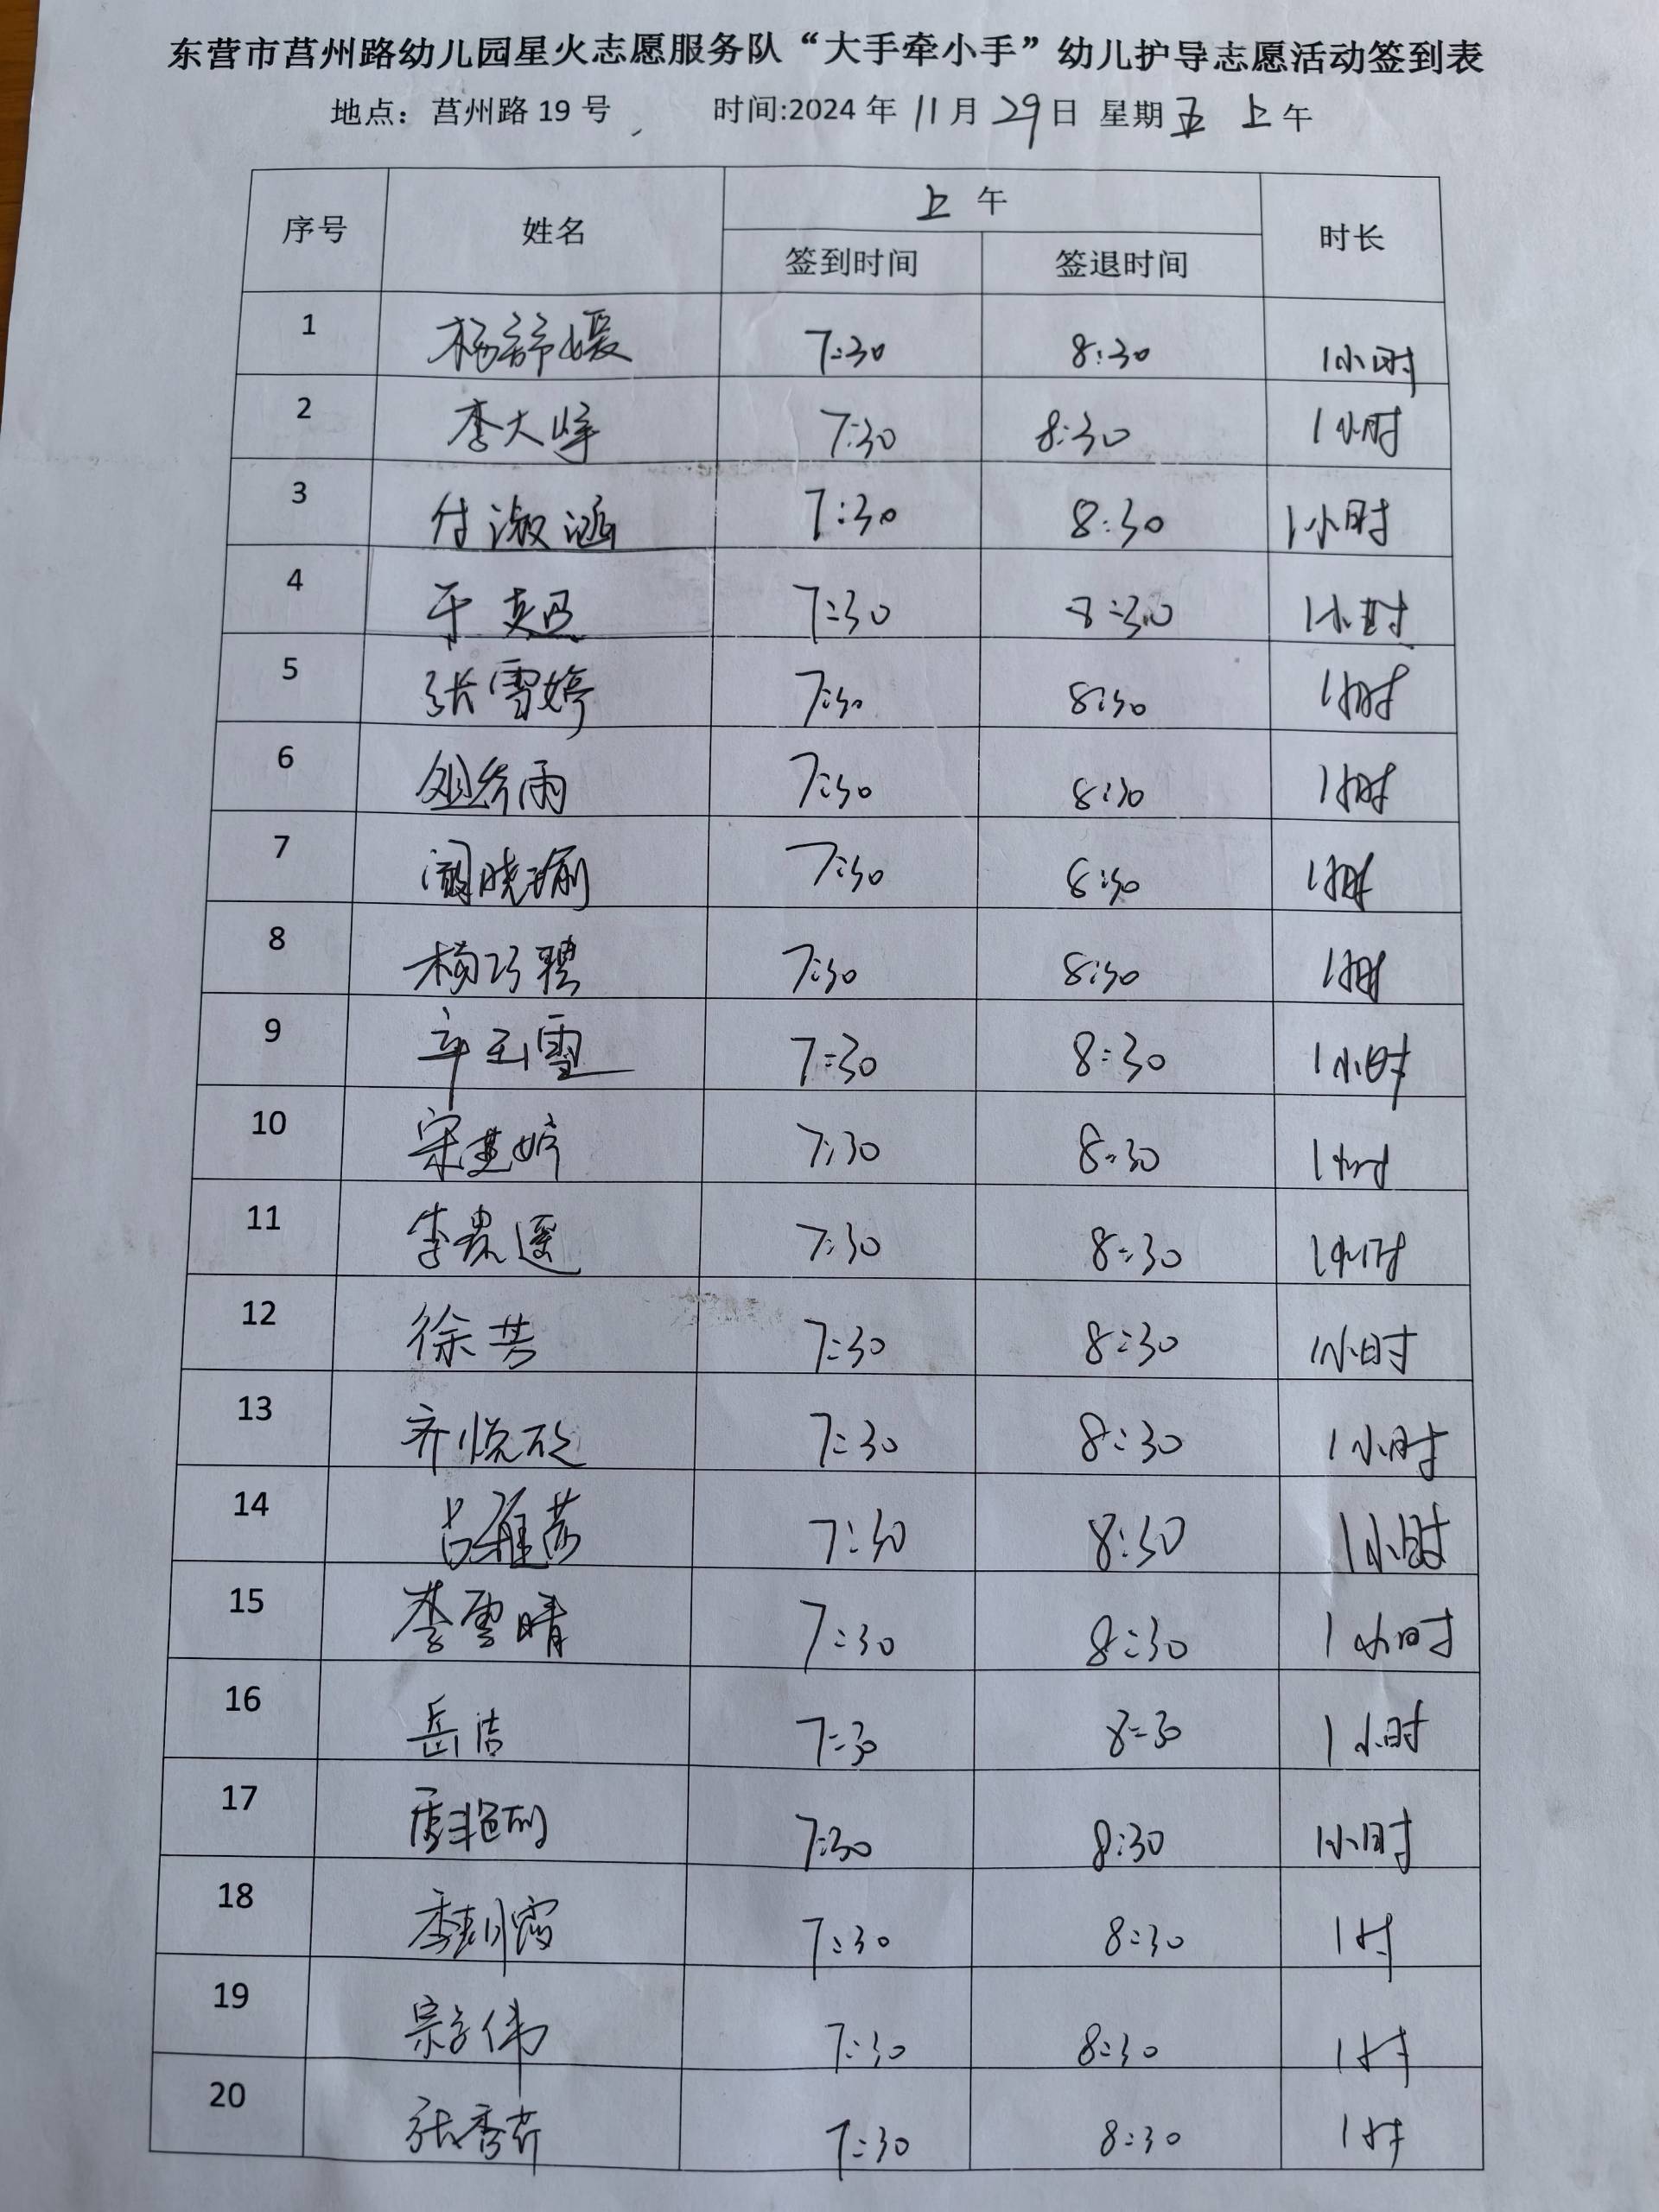 东营市莒州路幼儿园星火志愿服务队“大手牵小手”幼儿护导志愿活动签到表
地点：莒州路 19 号 时间:2024 年 11 月 29 日 星期 五 上 午
序号 姓名 上 午 时长
签到时间 签退时间
1 杨舒媛 7:30 8:30 1小时
2 李大峰 7:30 8:30 1小时
3 付淑涵 7:30 8:30 1小时
4 7:30 8:30 1小时
5 张雪婷 7:30 8:30 1小时
6 7:30 8:30 1小时
7 阚晓瑜 7:30 8:30 1小时
8 杨巧骋 7:30 8:30 1小时
9 辛玉雪 7:30 8:30 1小时
10 宋 婷 7:30 8:30 1小时
11 李 遥 7:30 8:30 1小时
12 徐芸 7:30 8:30 1小时
13 齐悦 7:30 8:30 1小时
14 吕雅茹 7:30 8:30 1小时
15 李雪晴 7:30 8:30 1小时
16 岳洁 7:30 8:30 1小时
17 唐艳丽 7:30 8:30 1小时
18 7:30 8:30 1时
19 宗学伟 7:30 8:30 1时
20 张秀芹 7:30 8:30 1时